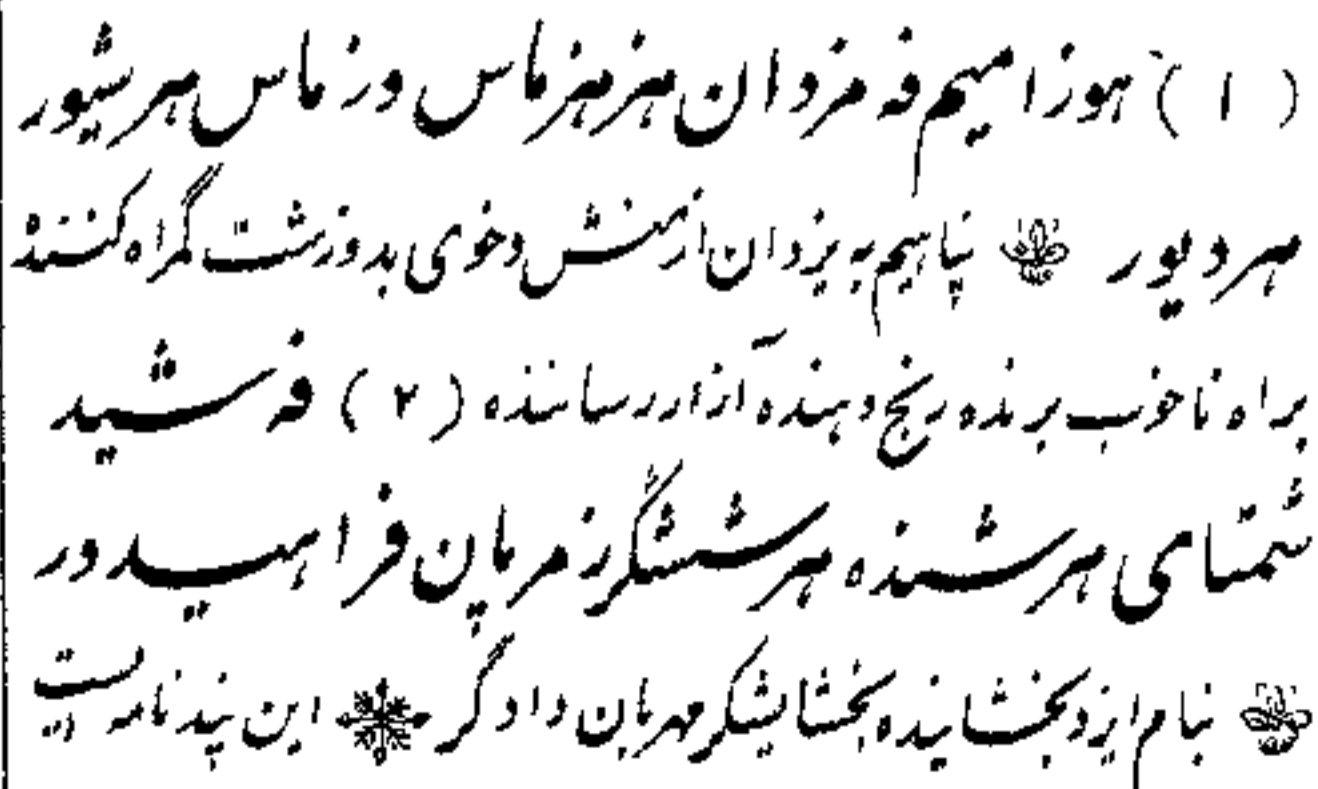 (۱) هوزامیم فه مزدان هزهزماس وزماس هرشیور
هردیور پناهیم به یزدان از منش و خوی بد و زشت گمراه کننده
براه ناخوب برنده رنج دهنده آزار رساننده (۲) فه شید
شمتای هرشنده هرششگر زمرپان فراهیدور
بنام ایزد بخشاینده بخشایشگر مهربان دادگر این پند نامه ایست